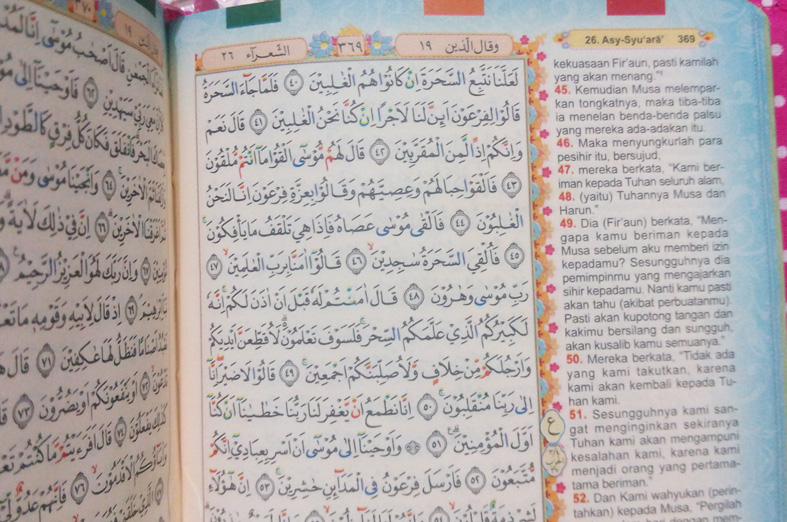 وقال الذين ١٩
٣٦٩
الشعراء ٢٦
لَعَلَّنَا نَتَّبِعُ السَّحَرَةَ اِنْ كَانُوْا هُمُ الْغٰلِبِيْنَ ﴿٤٠﴾ فَلَمَّا جَاۤءَ السَّحَرَةُ
قَالُوْا لِفِرْعَوْنَ اَىِٕنَّ لَنَا لَاَجْرًا اِنْ كُنَّا نَحْنُ الْغٰلِبِيْنَ ﴿٤١﴾ قَالَ نَعَمْ
وَاِنَّكُمْ اِذًا لَّمِنَ الْمُقَرَّبِيْنَ ﴿٤٢﴾ قَالَ لَهُمْ مُّوْسٰٓى اَلْقُوْا مَآ اَنْتُمْ مُّلْقُوْنَ
﴿٤٣﴾ فَاَلْقَوْا حِبَالَهُمْ وَعِصِيَّهُمْ وَقَالُوْا بِعِزَّةِ فِرْعَوْنَ اِنَّا لَنَحْنُ
الْغٰلِبُوْنَ ﴿٤٤﴾ فَاَلْقٰى مُوْسٰى عَصَاهُ فَاِذَا هِيَ تَلْقَفُ مَا يَأْفِكُوْنَ
﴿٤٥﴾ فَاُلْقِيَ السَّحَرَةُ سٰجِدِيْنَ ﴿٤٦﴾ قَالُوْٓا اٰمَنَّا بِرَبِّ الْعٰلَمِيْنَ ﴿٤٧﴾
رَبِّ مُوْسٰى وَهٰرُوْنَ ﴿٤٨﴾ قَالَ اٰمَنْتُمْ لَهٗ قَبْلَ اَنْ اٰذَنَ لَكُمْ اِنَّهٗ
لَكَبِيْرُكُمُ الَّذِيْ عَلَّمَكُمُ السِّحْرَ فَلَسَوْفَ تَعْلَمُوْنَ لَاُقَطِّعَنَّ اَيْدِيَكُمْ
وَاَرْجُلَكُمْ مِّنْ خِلَافٍ وَّلَاُصَلِّبَنَّكُمْ اَجْمَعِيْنَ ﴿٤٩﴾ قَالُوْا لَا ضَيْرَ اِنَّآ
اِلٰى رَبِّنَا مُنْقَلِبُوْنَ ﴿٥٠﴾ اِنَّا نَطْمَعُ اَنْ يَّغْفِرَ لَنَا رَبُّنَا خَطٰيٰنَآ اَنْ كُنَّآ
اَوَّلَ الْمُؤْمِنِيْنَ ﴿٥١﴾ وَاَوْحَيْنَآ اِلٰى مُوْسٰٓى اَنْ اَسْرِ بِعِبَادِيْٓ اِنَّكُمْ
مُّتَّبَعُوْنَ ﴿٥٢﴾ فَاَرْسَلَ فِرْعَوْنُ فِى الْمَدَاۤىِٕنِ حٰشِرِيْنَ ﴿٥٣﴾ اِنَّ هٰٓؤُلَاۤءِ
ع
26. Asy-Syu‘arā’ 369
kekuasaan Fir'aun, pasti kamilah
yang akan menang."
45. Kemudian Musa melempar-
kan tongkatnya, maka tiba-tiba
ia menelan benda-benda palsu
yang mereka ada-adakan itu.
46. Maka menyungkurlah para
pesihir itu, bersujud,
47. mereka berkata, "Kami ber-
iman kepada Tuhan seluruh alam,
48. (yaitu) Tuhannya Musa dan
Harun."
49. Dia (Fir'aun) berkata, "Men-
gapa kamu beriman kepada
Musa sebelum aku memberi izin
kepadamu? Sesungguhnya dia
pemimpinmu yang mengajarkan
sihir kepadamu. Nanti kamu pasti
akan tahu (akibat perbuatanmu).
Pasti akan kupotong tangan dan
kakimu bersilang dan sungguh,
akan kusalib kamu semuanya."
50. Mereka berkata, "Tidak ada
yang kami takutkan, karena
kami akan kembali kepada Tu-
han kami.
51. Sesungguhnya kami san-
gat menginginkan sekiranya
Tuhan kami akan mengampuni
kesalahan kami, karena kami
menjadi orang yang pertama-
tama beriman."
52. Dan Kami wahyukan (perin-
tahkan) kepada Musa, "Pergilah
٣٧٠
١٩
قَالَ اَصْحٰبُ مُوْسٰٓى اِنَّا
سَيَهْدِيْنِ ﴿٦٢﴾ فَاَوْحَيْنَآ اِلٰى
فَانْفَلَقَ فَكَانَ كُلُّ فِرْقٍ كَالطَّوْدِ
الْاٰخَرِيْنَ ﴿٦٤﴾ وَاَنْجَيْنَا مُوْسٰى وَمَنْ
الْاٰخَرِيْنَ ﴿٦٦﴾ اِنَّ فِيْ ذٰلِكَ لَاٰيَةً
وَاِنَّ رَبَّكَ لَهُوَ الْعَزِيْزُ الرَّحِيْمُ
اِذْ قَالَ لِاَبِيْهِ وَقَوْمِهٖ مَا
اَصْنَامًا فَنَظَلُّ لَهَا عٰكِفِيْنَ ﴿٧١﴾ قَالَ
اَوْ يَنْفَعُوْنَكُمْ اَوْ يَضُرُّوْنَ ﴿٧٣﴾
كَذٰلِكَ يَفْعَلُوْنَ ﴿٧٤﴾ قَالَ اَفَرَءَيْتُمْ مَّا كُنْتُمْ
الْاَقْدَمُوْنَ ﴿٧٦﴾ فَاِنَّهُمْ عَدُوٌّ